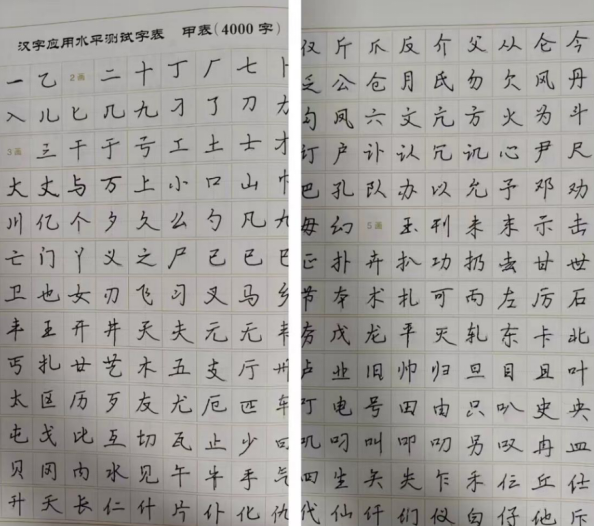 汉字应用水平测试字表 甲表(4000字)
一乙 2画 二十丁厂七卜
入儿匕几九刁了刀力
3画 三干于亏工土士才
大丈与万上小口山巾
川亿个夕久么勺凡
亡门丫义之尸已巳
卫也女刃飞习叉马乡
丰王开井天夫元无
丐扎廿艺木五支厅卅
太区历歹友尤厄匹车
屯戈比互切瓦止少
贝冈内水见午牛手气
升夭长仁什片仆化仇
仅斤爪反介父从仑今
乏公仓月氏勿欠风丹
勾凤六文亢方火为斗
订户讣认冗讥心尹尺
巴孔队办以允予邓劝
毋幻 5画 玉刊未末示击
正扑卉扒功扔去甘世
节本术札可丙左厉石
夯戊龙平灭轧东卡北
卢业旧帅归旦目且叶
叮电号田由只叭史央
叽叼叫叩叨另叹冉皿
四生矢失乍禾仨丘仕
代仙仟们仪白仔他斥